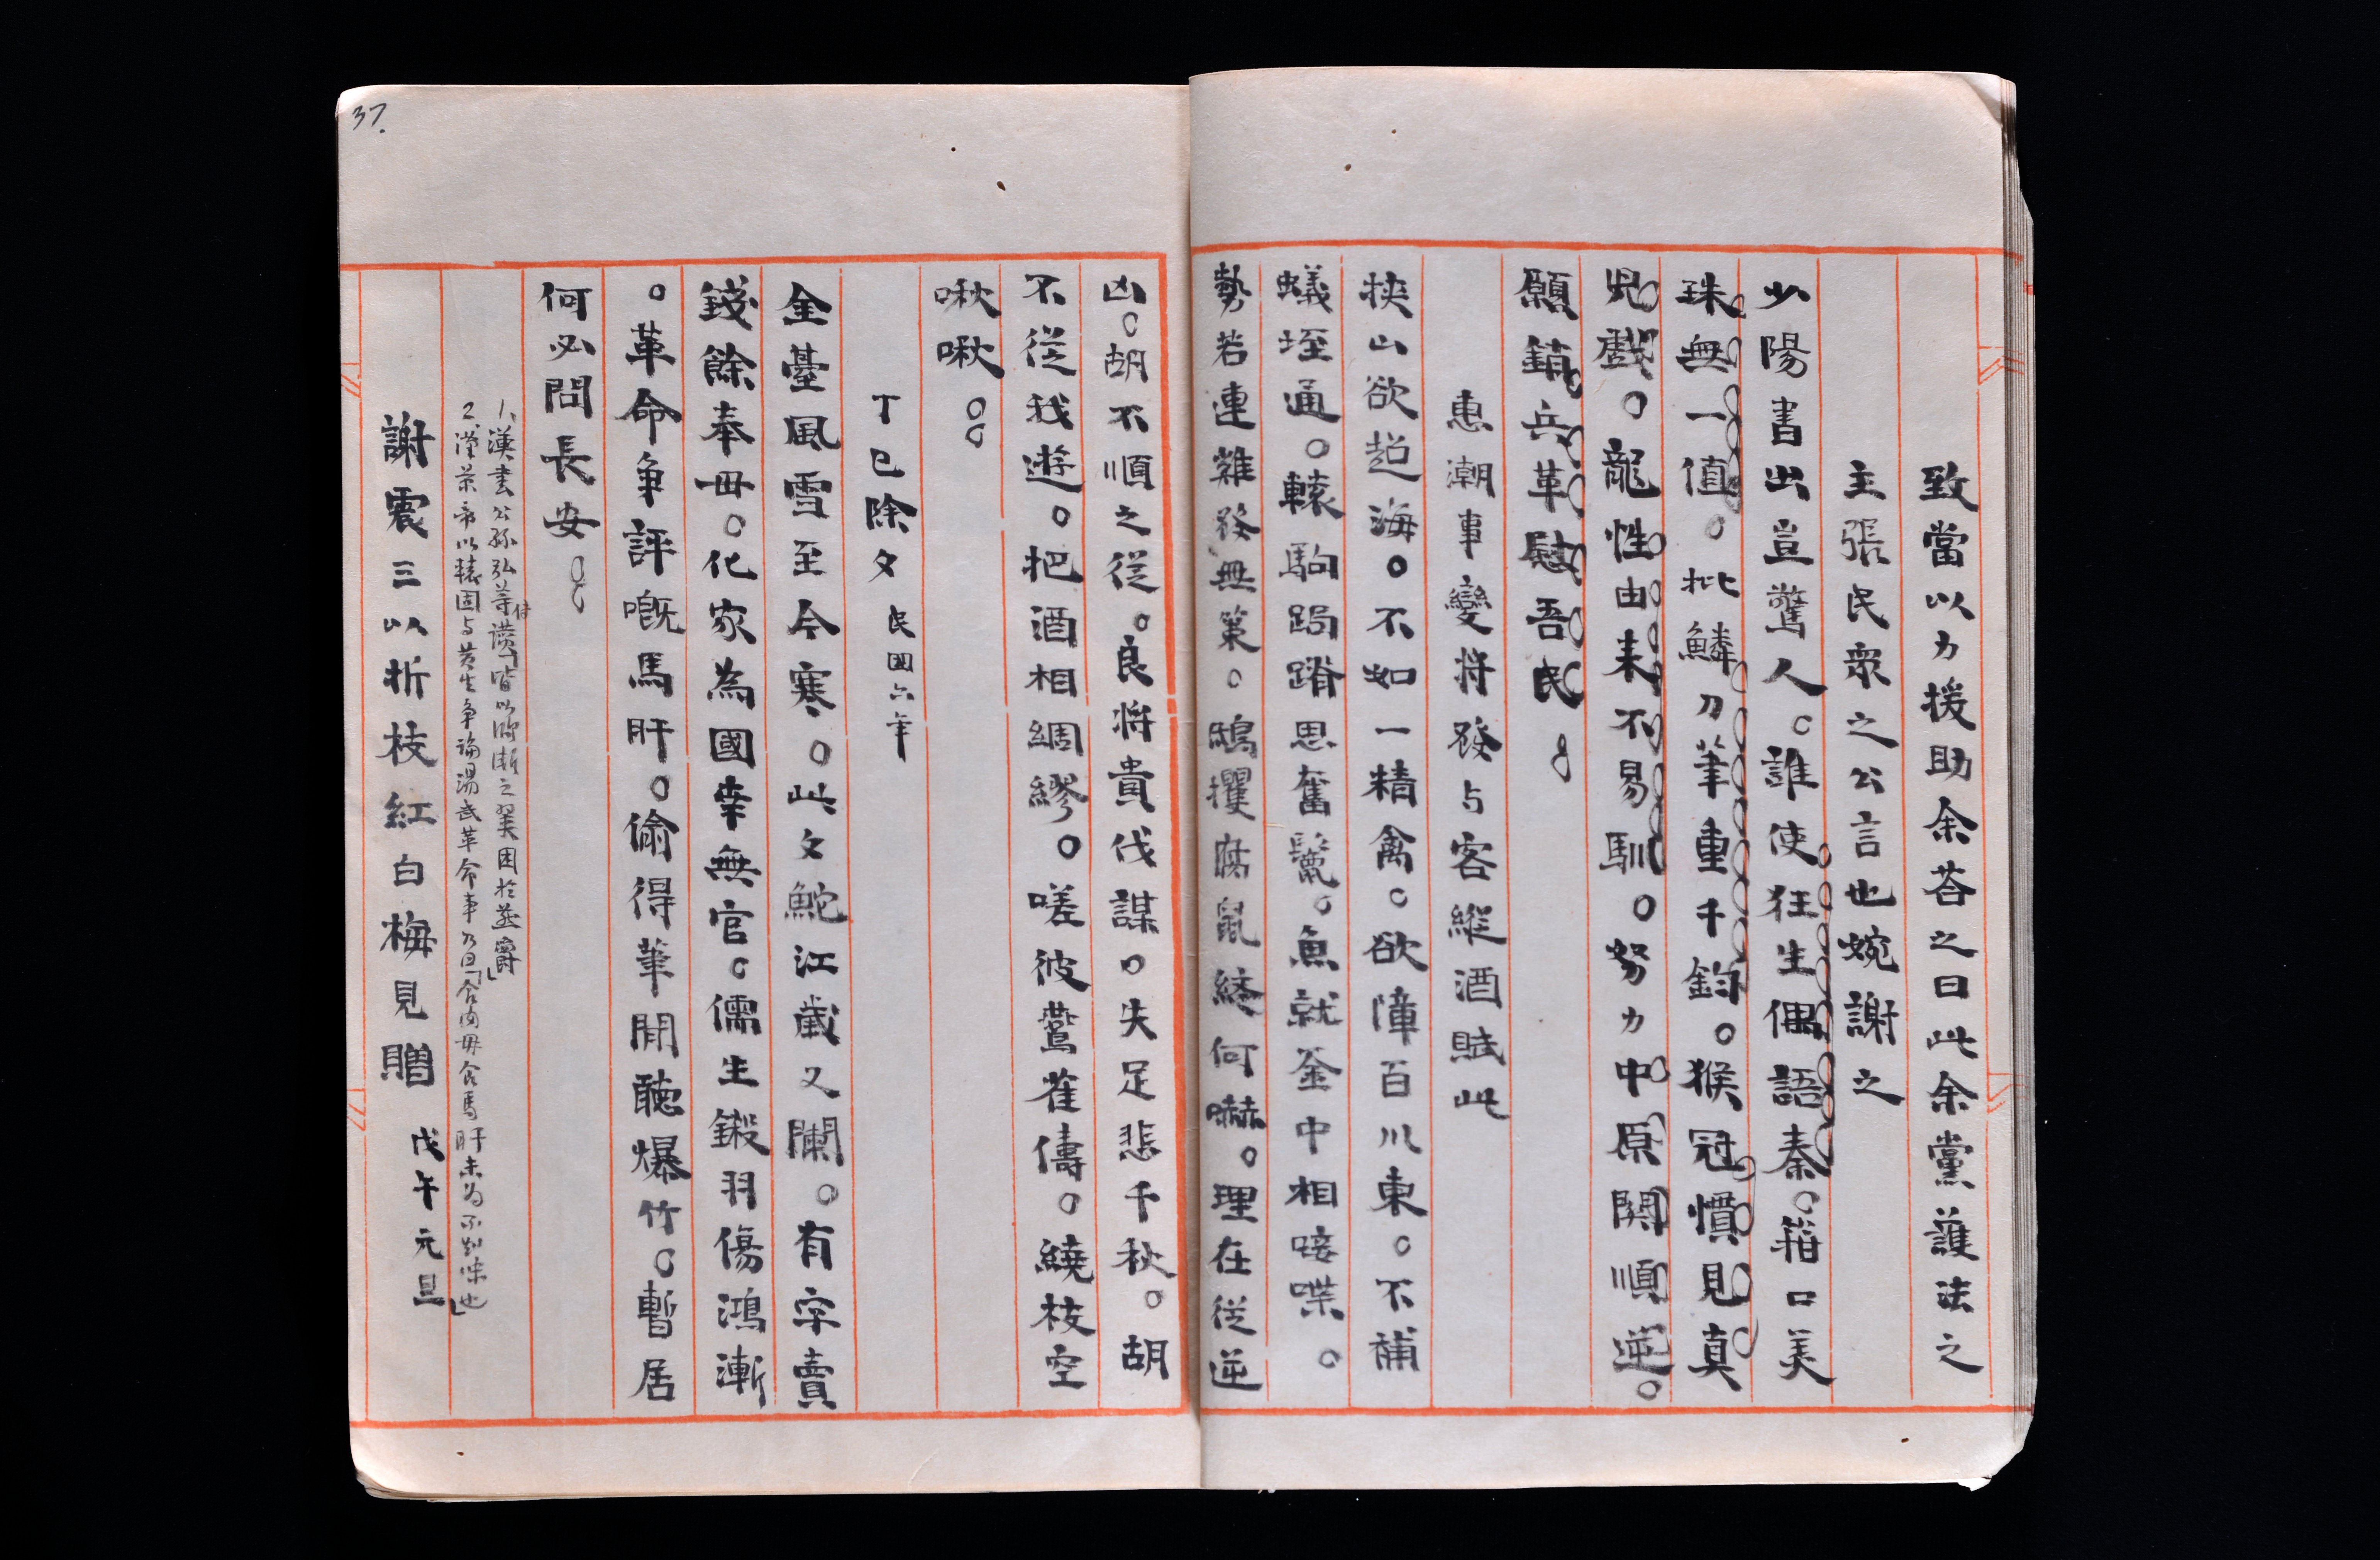 致當以力援助余荅之曰此余黨護法之
主張民衆之公言也婉謝之
少陽書出豈驚人。誰使狂生偶語秦。箝口美
珠無一值。批鱗刀筆重千鈞。猴冠慣見真
兒戲。龍性由来不易馴。努力中原關順逆。
願銷兵革慰吾民。
惠潮事變将發与客縱酒賦此
挾山欲超海。不如一精禽。欲障百川東。不補
蟻垤通。轅駒跼蹐思奮鬣。魚就釜中相唼喋。
勢若連雞發無策。鴟攫腐鼠緣何嚇。理在従逆
凶。胡不順之従。良將貴伐謀。失足悲千秋。胡
不従我遊。把酒相綢繆。嗟彼鷰雀儔。繞枝空
啾啾。
丁巳除夕 民国六年
金臺風雪至今寒。此夕鮀江歲又闌。有字賣
錢餘奉母。化家為國幸無官。儒生鍛羽傷鴻漸
。革命争評嘅馬肝。偷得筆閒聽爆竹。暫居
何必問長安。
1、漢書公孫弘等傳讚「皆以鴻漸之翼困於燕爵」
2、漢景帝以轅固与黄生争論湯武革命事乃曰「食肉毋食馬肝未為不知味也」
謝震三以折枝紅白梅見贈 戊午元旦
37.